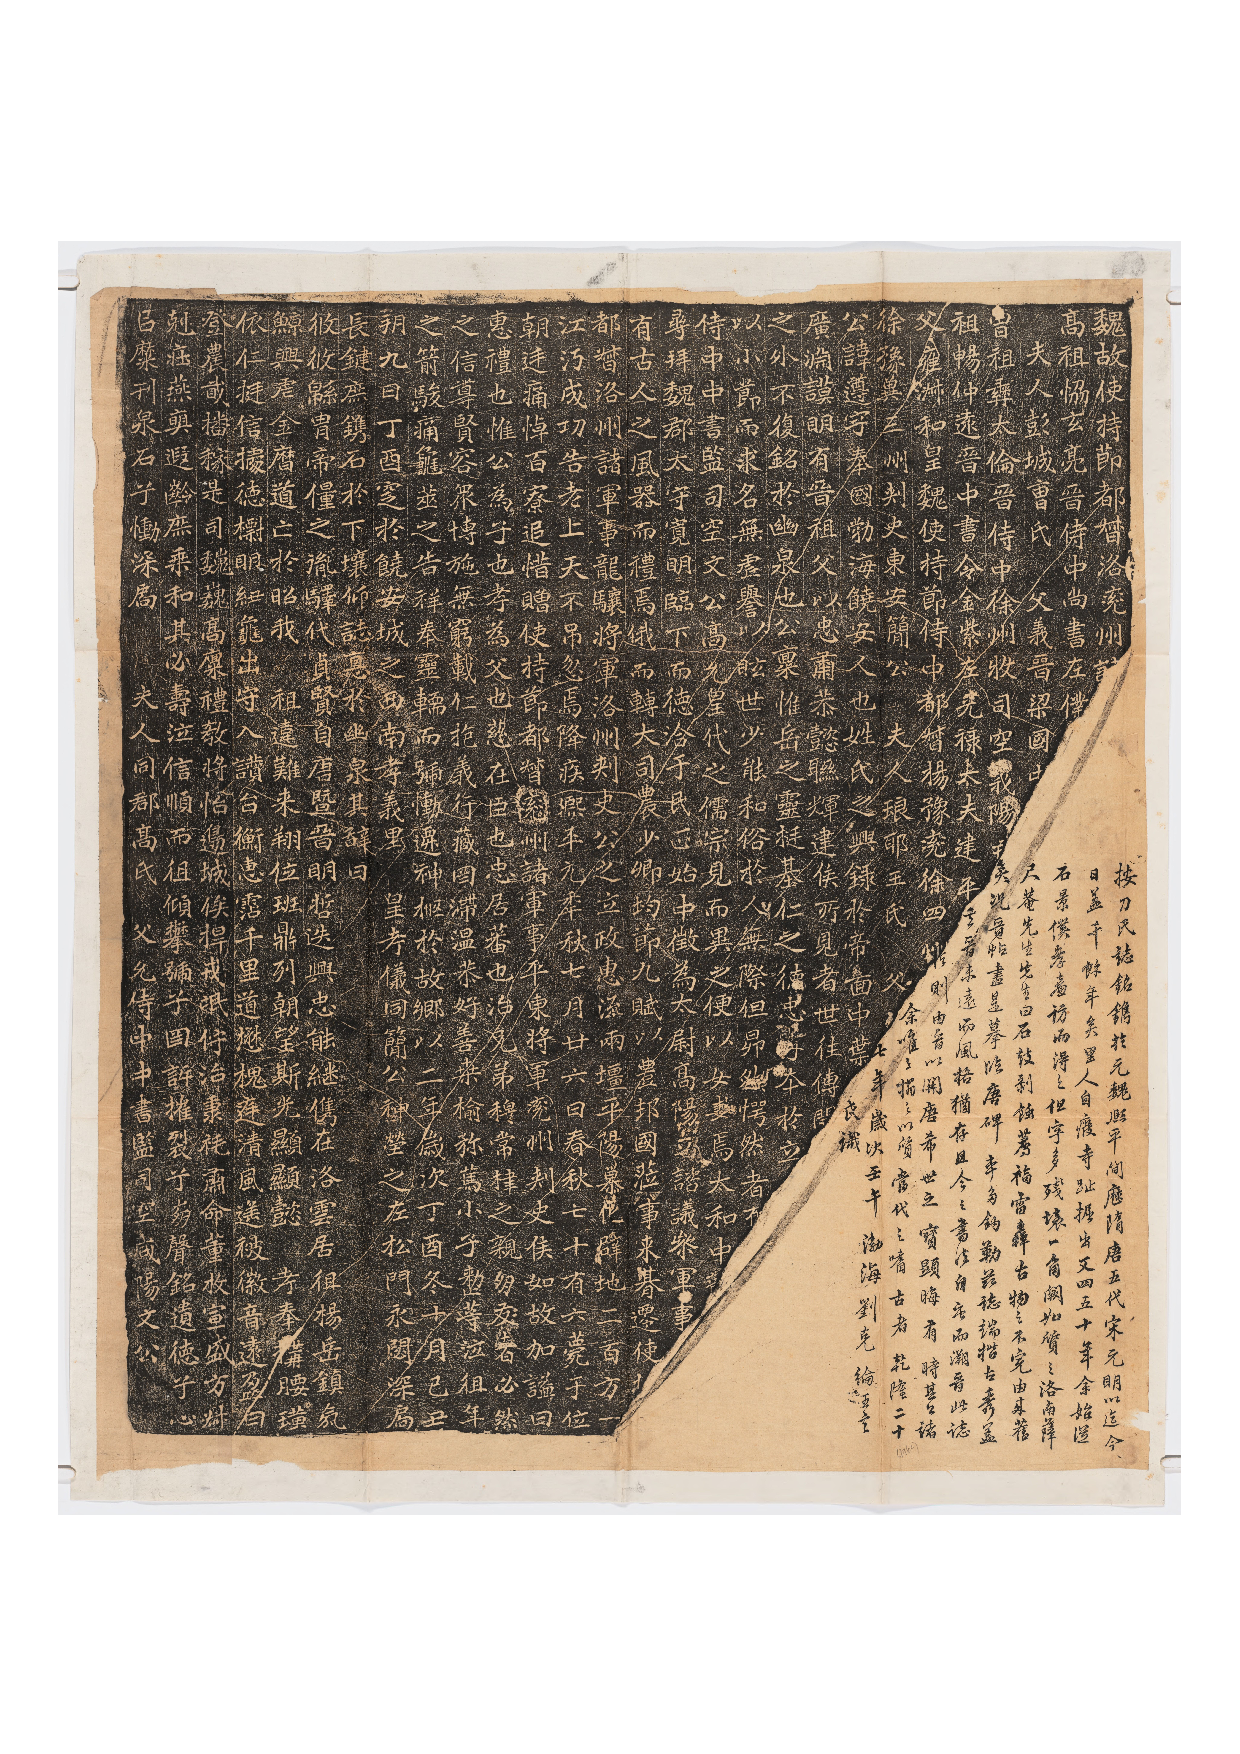 魏故使持節都督洛兖州
高祖恊玄亮晉侍中尚書左僕
夫人彭城曹氏 父義晉梁國
曾祖彝大倫晉侍中徐州牧司空義陽
祖暢仲遠晉中書令金紫左光祿大夫建平
父雍淑和皇魏使持節侍中都督揚豫兖徐四
徐豫冀三州刺史東安簡公 夫人琅耶王氏 父
公諱遵字奉國勃海饒安人也姓氏之興錄於帝啚中葉
廣淵謨明有晉祖父以忠肅恭懿聯輝建侯所見者世往傳聞
之外不復銘於幽泉也公禀惟岳之靈挺基仁之德忠孝本於
以小節而求名無虛譽以眩世少能和俗於人無際但昂然愕然者
侍中中書監司空文公高允皇代之儒宗見而異之便以女妻焉太和中
尋拜魏郡太守寬明臨下而德洽于民正始中徵為太尉高陽王諮議參軍事
有古人之風器而禮焉俄而轉大司農少卿均節九賦以豐邦國莅事未朞遷使
都督洛州諸軍事龍驤將軍洛州刺史公之立政惠流兩壇平陽慕化辟地二百方一
江沔成功告老上天不吊忽焉降疾熙平元年秋七月廿六日春秋七十有六薨于位
朝廷痛悼百寮追惜贈使持節都督兖州諸軍事平東將軍兖州刺史侯如故加謚曰
惠禮也惟公為子也孝為父也慈在臣也忠居蕃也治兄弟穆常棣之親朋友著必然
之信尊賢容眾博施無窮載仁抱義行藏罔滯溫恭好善桑榆弥篤小子整等泣徂年
之箭駿痛龜筮之告祥奉靈輀而弥慟遷神柩於故鄉以二年歲次丁酉冬十月己丑
朔九日丁酉窆於饒安城之西南孝義里 皇考儀同簡公神塋之左松門永閟深扃
長鍵庶鐫石於下壤仰誌惠於幽泉其辭曰
攸攸緜冑帝僮之胤驛代貞賢自唐暨晉明哲迭興忠能繼儁在各雲居徂楊岳鎮氣
鯨興虐金曆道亡於昭我 祖違難來翔位班鼎列朝望斯光顯顯懿考奉構腰璜
依仁挺信據德欄眼紐龜出守入讚台衡惠霑千里道懋槐庭清風遙被徽音遠盈曰
登農畝播稼是司巍巍高廪禮教將怡邊城俟捍戎氓佇治秉旄肅命董牧宣威方辯
剋莊燕奭遐齡庶乘和其必壽泣信順而徂傾攀彌子罔訴摧裂子為聲銘遺德子心
已糜刊泉石子慟深扃 夫人同郡高氏 父允侍中中書監司空咸陽文公
按刀氏誌銘鐫於元魏熙平間歷隋唐五代宋元明以迄今
日蓋千餘年矣里人自廢寺趾掘出又四五十年余始從
石景儀孝廉訪而得之但字多殘壞一角闕如質之洛南薛
尺菴先生先生曰石鼓剝蝕薦福雷轟古物之不完由來舊
矣況晉帖盡是摹臨唐碑率多鉤勒茲誌端楷古秀蓋
去晉未遠而風格猶存且今之書法自唐而溯晉此誌
則由晉以開唐希世之寶顯晦有時其公諸
余唯之搨之以質當代之嗜古者 乾隆二十
七年歲次壬午 渤海劉克綸
氏識